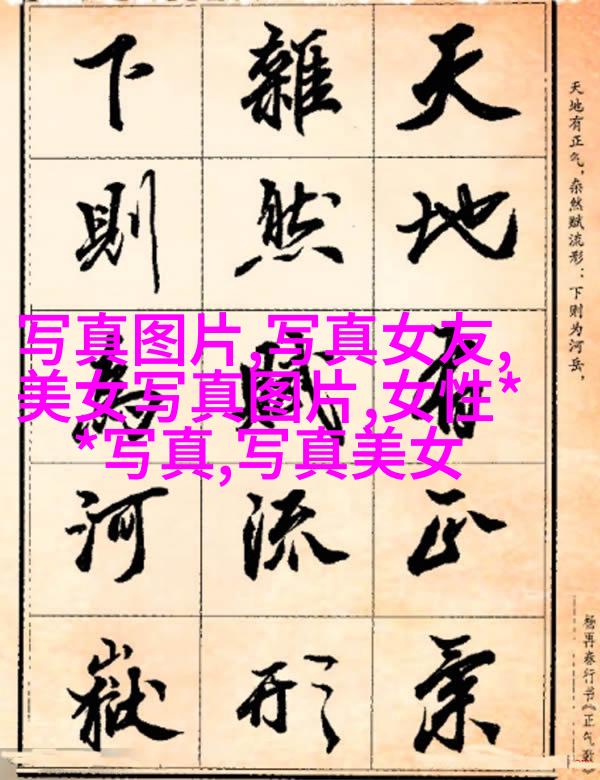 天地有正气，杂然赋流形：下则为河岳，
杨再春行书《正气歌》
天地有正氣
雜然賦流形
下則為河嶽
写真图片,写真女友,
美女写真图片,女性*
*写真,写真美女